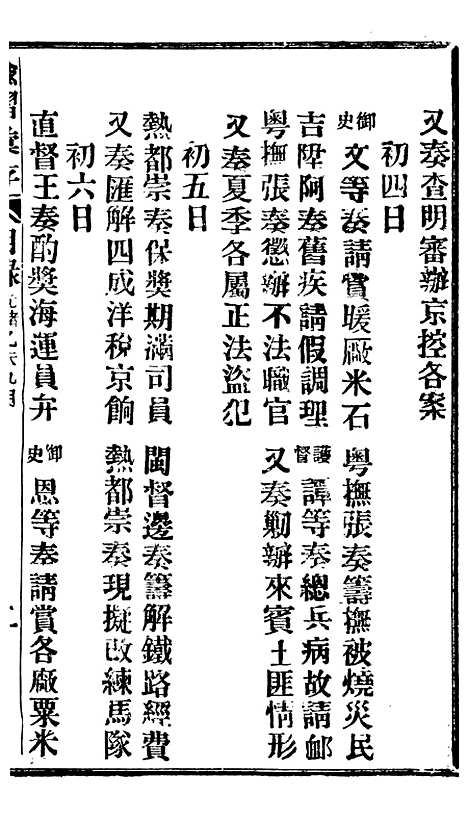 又奏查明審辦京控各案
初四日
御史文等奏請賞暖厰米石 粤撫張奏籌撫被燒災民
吉陞阿奏舊疾請假調理 護督譚等奏總兵病故請卹
粤撫張奏懲辦不法職官 又奏剿辦來賓土匪情形
又奏夏季各屬正法盜犯
初五日
熱都崇奏保獎期滿司員 閩督邊奏籌解鐵路經費
又奏匯解四成洋稅京餉 熱都崇奏現擬改練馬隊
初六日
直督王奏酌獎海運員弁 御史恩等奏請賞各厰粟米
諭摺彙存 目錄 光緒乙未九月